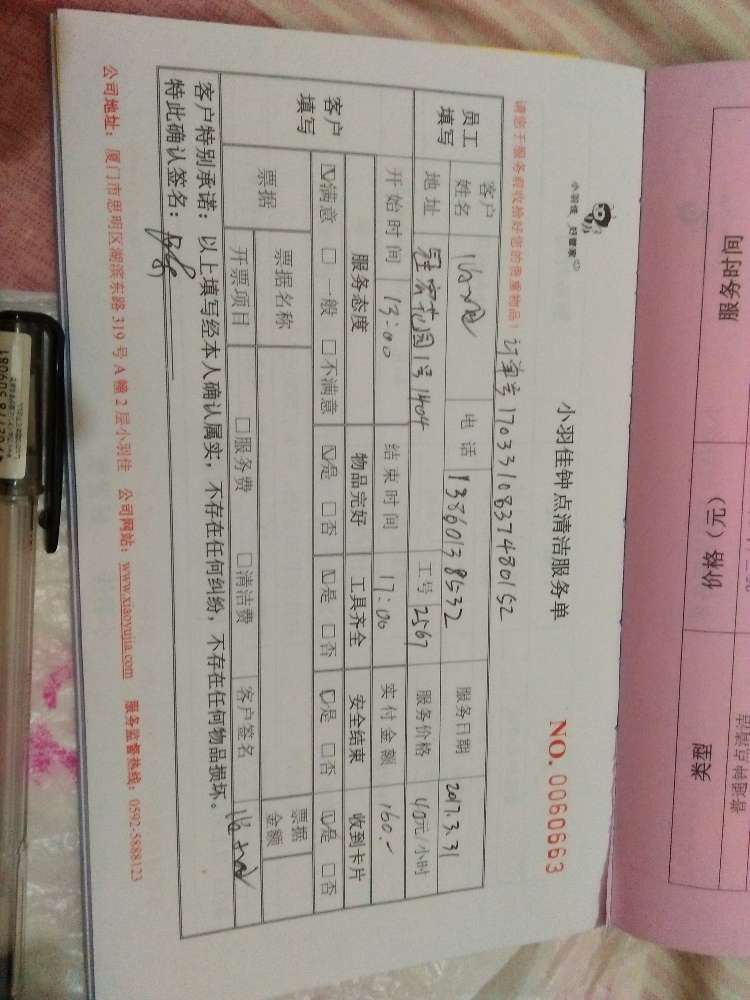 小羽佳 好管家
小羽佳钟点清洁服务单
NO. 0060663
请您于服务前收拾好您的贵重物品!
订单号17033108371480152
员工填写 客户姓名 电话 13860138532 服务日期 2017.3.31
地址 花园1号1404 工号 2567 服务价格 40元/小时
客户填写 开始时间 13:00 结束时间 17:00 实付金额 160.-
服务态度 物品完好 工具齐全 安全结束 收到卡片
☑满意 □一般 □不满意 ☑是 □否 ☑是 □否 ☑是 □否 ☑是 □否
票据 票据名称 票据金额
开票项目 □服务费 □清洁费 客户签名
客户特别承诺:以上填写经本人确认属实,不存在任何纠纷,不存在任何物品损坏。
特此确认签名:
公司地址:厦门市思明区湖滨东路319号A幢2层小羽佳 公司网站:www.xiaoyujia.com 服务监督热线:0592-5888123
服务时间
价格(元)
类型
普通钟点清洁